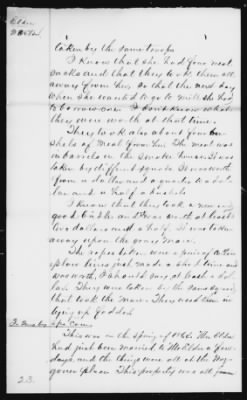 taken by the same troops
I know that she had four meal
sacks and that they took them all
away from her, So that the next day
when she wanted to go to mill she had
to borrow one. I don't know what
they were worth at that time.
They took also about four bu-
shels of Meal from her. The meal was
in barrels in the smoke house. It was
taken by different squads. It was worth
from a dollar and a quarter to a dol-
lar and a half a bushel.
I know that they took a new
good bridle and it was worth at least
two dollars and a half. It was taken
away upon the gray mare.
The ropes taken were a pair of
plow lines just such a bridle lines and
was worth, I should say at least a dol-
lar. They were taken by the same squad
that took the mare. They used them in
tying up fodder.
This was in the spring of 1865. Mrs Elder
had just been married to Mr Elder a few
days, and the things were all at the
place. This property was all
23.